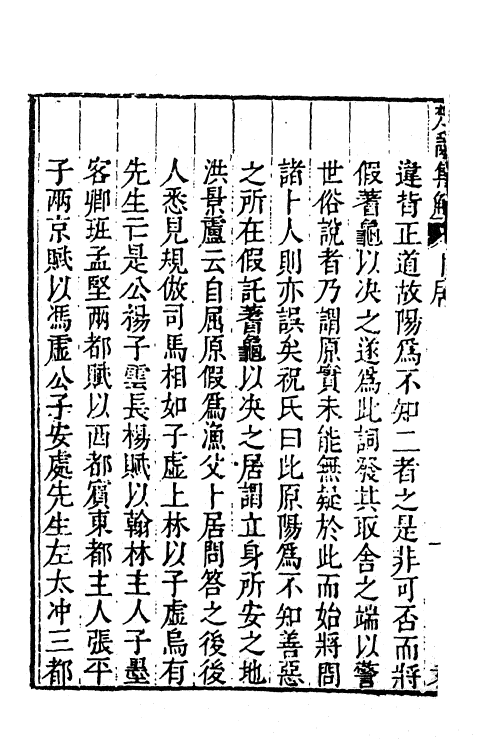 違背正道故陽爲不知二者之是非可否而將
假蓍龜以决之遂爲此詞發其取舍之端以警
世俗說者乃謂原實未能無疑於此而始將問
諸卜人則亦誤矣祝氏曰此原陽爲不知善惡
之所在假託蓍龜以决之居謂立身所安之地
洪景盧云自屈原假爲漁父卜居問答之後後
人悉見規倣司馬相如子虛上林以子虛烏有
先生亡是公揚子雲長楊賦以翰林主人子墨
客卿班孟堅兩都賦以西都賓東都主人張平
子兩京賦以馮虛公子安處先生左太冲三都